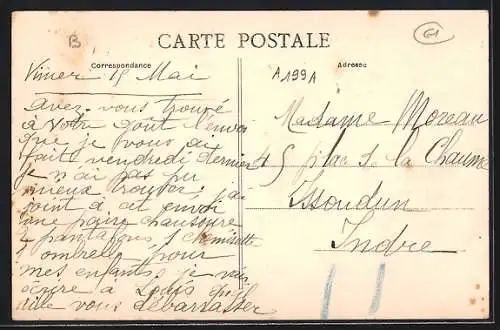 B
61
CARTE POSTALE
Correspondance
Adresse
A199A
15 Mai
avez-vous trouvé
à votre goût l'envoi
que je vous ai
fait vendredi dernier
je n'ai pas pu
mieux trouver j'ai
joint à cet envoi
une paire chaussure
2 pantalons 1 chemisette
1 ombrelle pour
mes enfants je vais
écrire à Louis
vous débarrasser
Madame Moreau
45 place de la Chaume
Issoudun
Indre